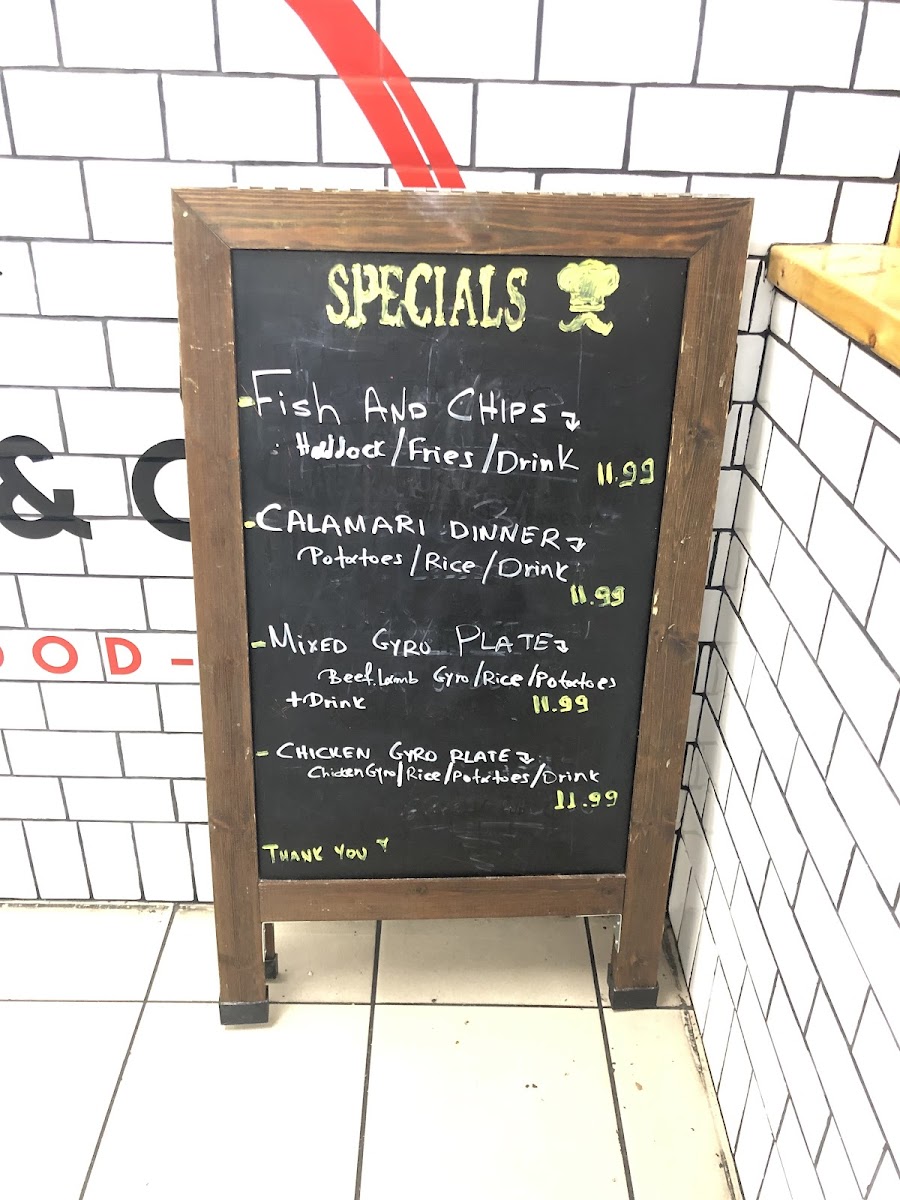 SPECIALS
- Fish AND CHIPS
Haddock/Fries/Drink
11.99
- CALAMARI DINNER
Potatoes/Rice/Drink
11.99
- MIXED GYRO PLATE
Beef.Lamb Gyro/Rice/Potatoes
+Drink 11.99
- CHICKEN GYRO PLATE
Chicken Gyro/Rice/Potatoes/Drink
11.99
THANK YOU
& C
OOD-